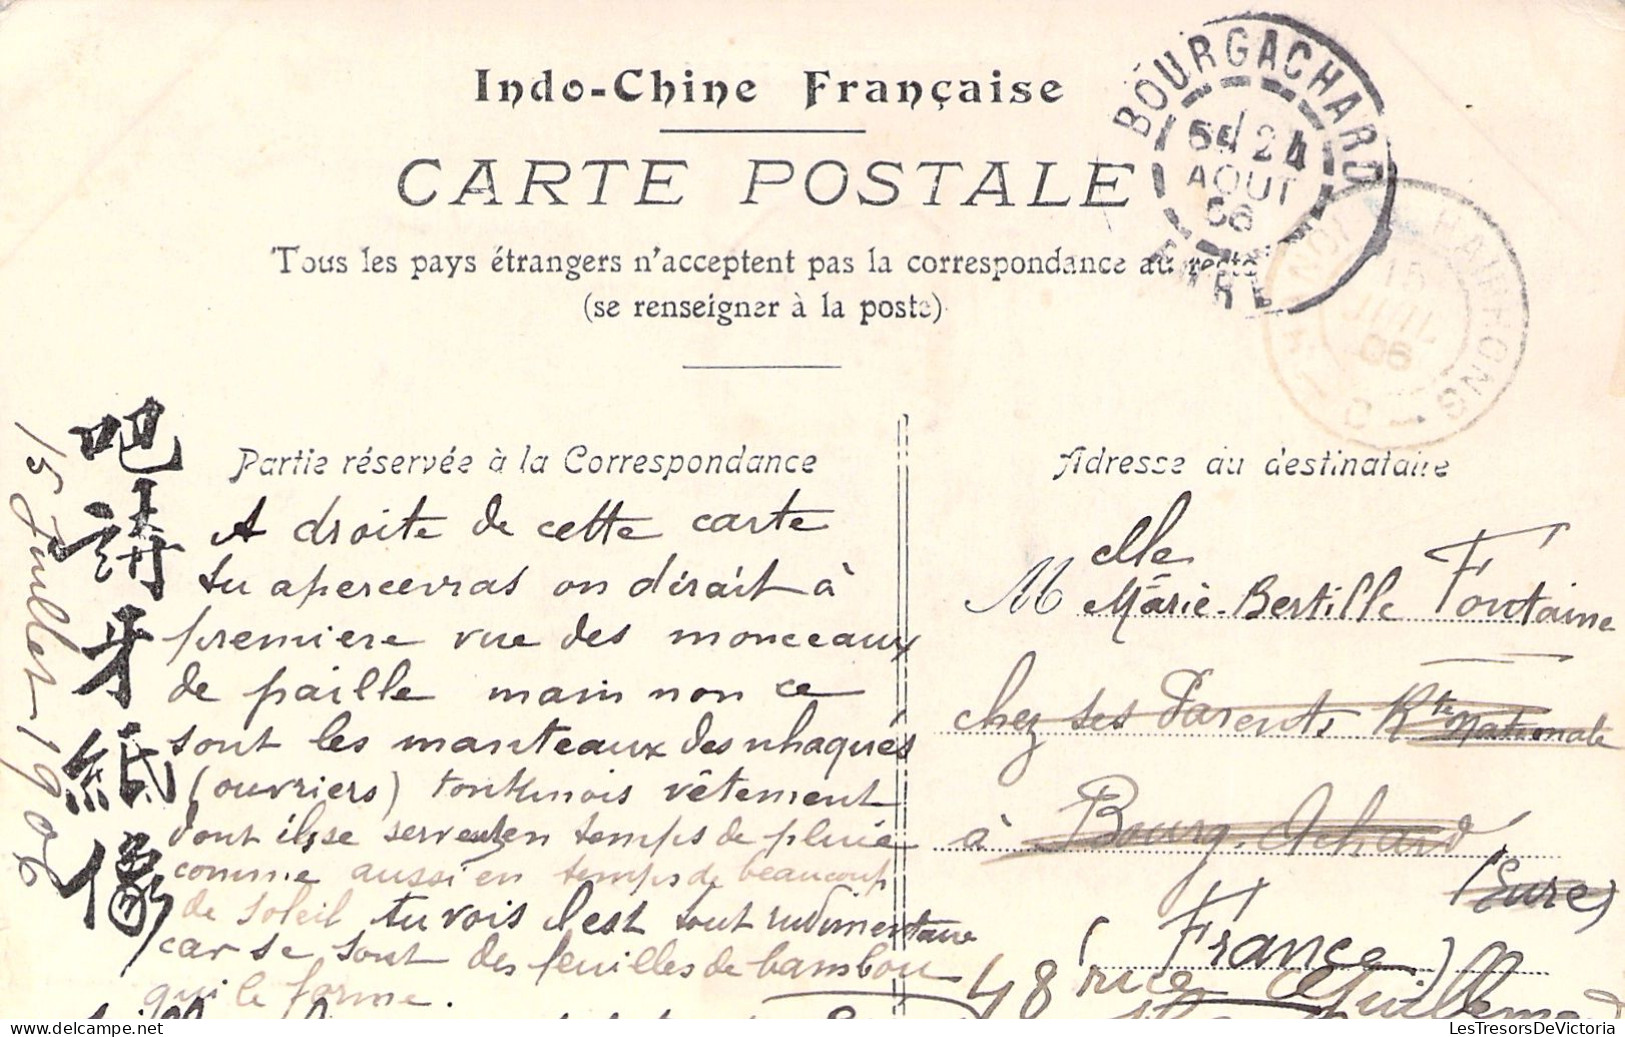 Indo-Chine Française
CARTE POSTALE
Tous les pays étrangers n'acceptent pas la correspondance au recto
(se renseigner à la poste)
BOURGACHARD
24
AOUT
06
EURE
HAIPHONG
15
JUIL
06
Partie réservée à la Correspondance
A droite de cette carte
tu apercevras on dirait à
première vue des monceaux
de paille main non ce
sont les manteaux des nhaqués
(ouvriers) tonkinois vêtement
dont ils se servent en temps de pluie
comme aussi en temps de beaucoup
de soleil tu vois c'est tout rudimentaire
car se sont des feuilles de bambou
qui le forme.
吧請牙紙像
15 Juillet 1906
Adresse du destinataire
M elle
Marie-Bertille Fontaine
chez ses Parents Rte Nationale
à Bourg-Achard
(Eure)
(France)
48 rue
LesTresorsDeVictoria.com